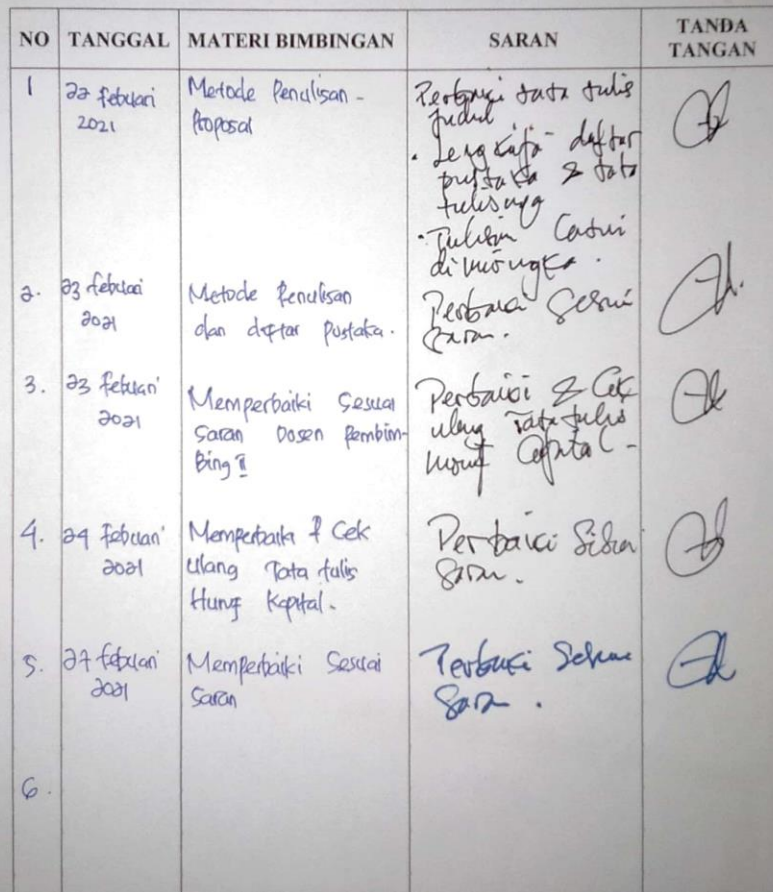 NO TANGGAL MATERI BIMBINGAN SARAN TANDA TANGAN
1 22 Febuari 2021
Metode Penulisan -
Proposal
Perbaiki tata tulis
judul
. Lengkapi daftar
pustaka & tata
tulisnya
. Tulisan
2. 23 febuari 2021
Metode Penulisan
dan daftar Pustaka.
Perbaiki Sesuai
Saran.
3. 23 febuari 2021
Memperbaiki Sesuai
Saran Dosen Pembim-
Bing II
Perbaiki & Cek
ulang Tata tulis
huruf Capital -
4. 24 Febuari 2021
Memperbaiki & Cek
Ulang Tata tulis
Huruf Kapital.
Perbaiki Sesuai
Saran.
5. 27 febuari 2021
Memperbaiki Sesuai
Saran
Perbaiki Sesuai
Saran.
6.